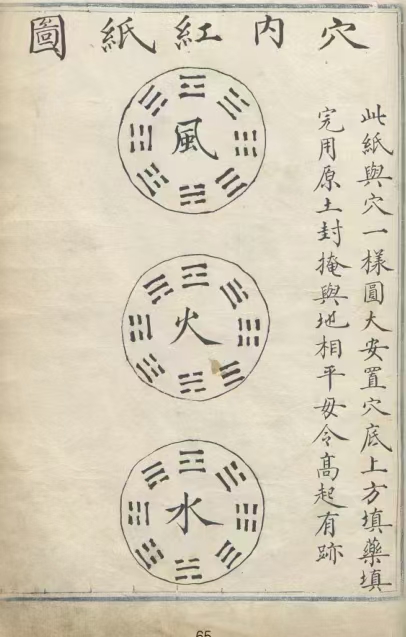 穴內紅紙圖
此紙與穴一樣圓大安置穴底上方填藥填
完用原土封掩與地相平毋令高起有跡
風
火
水
65